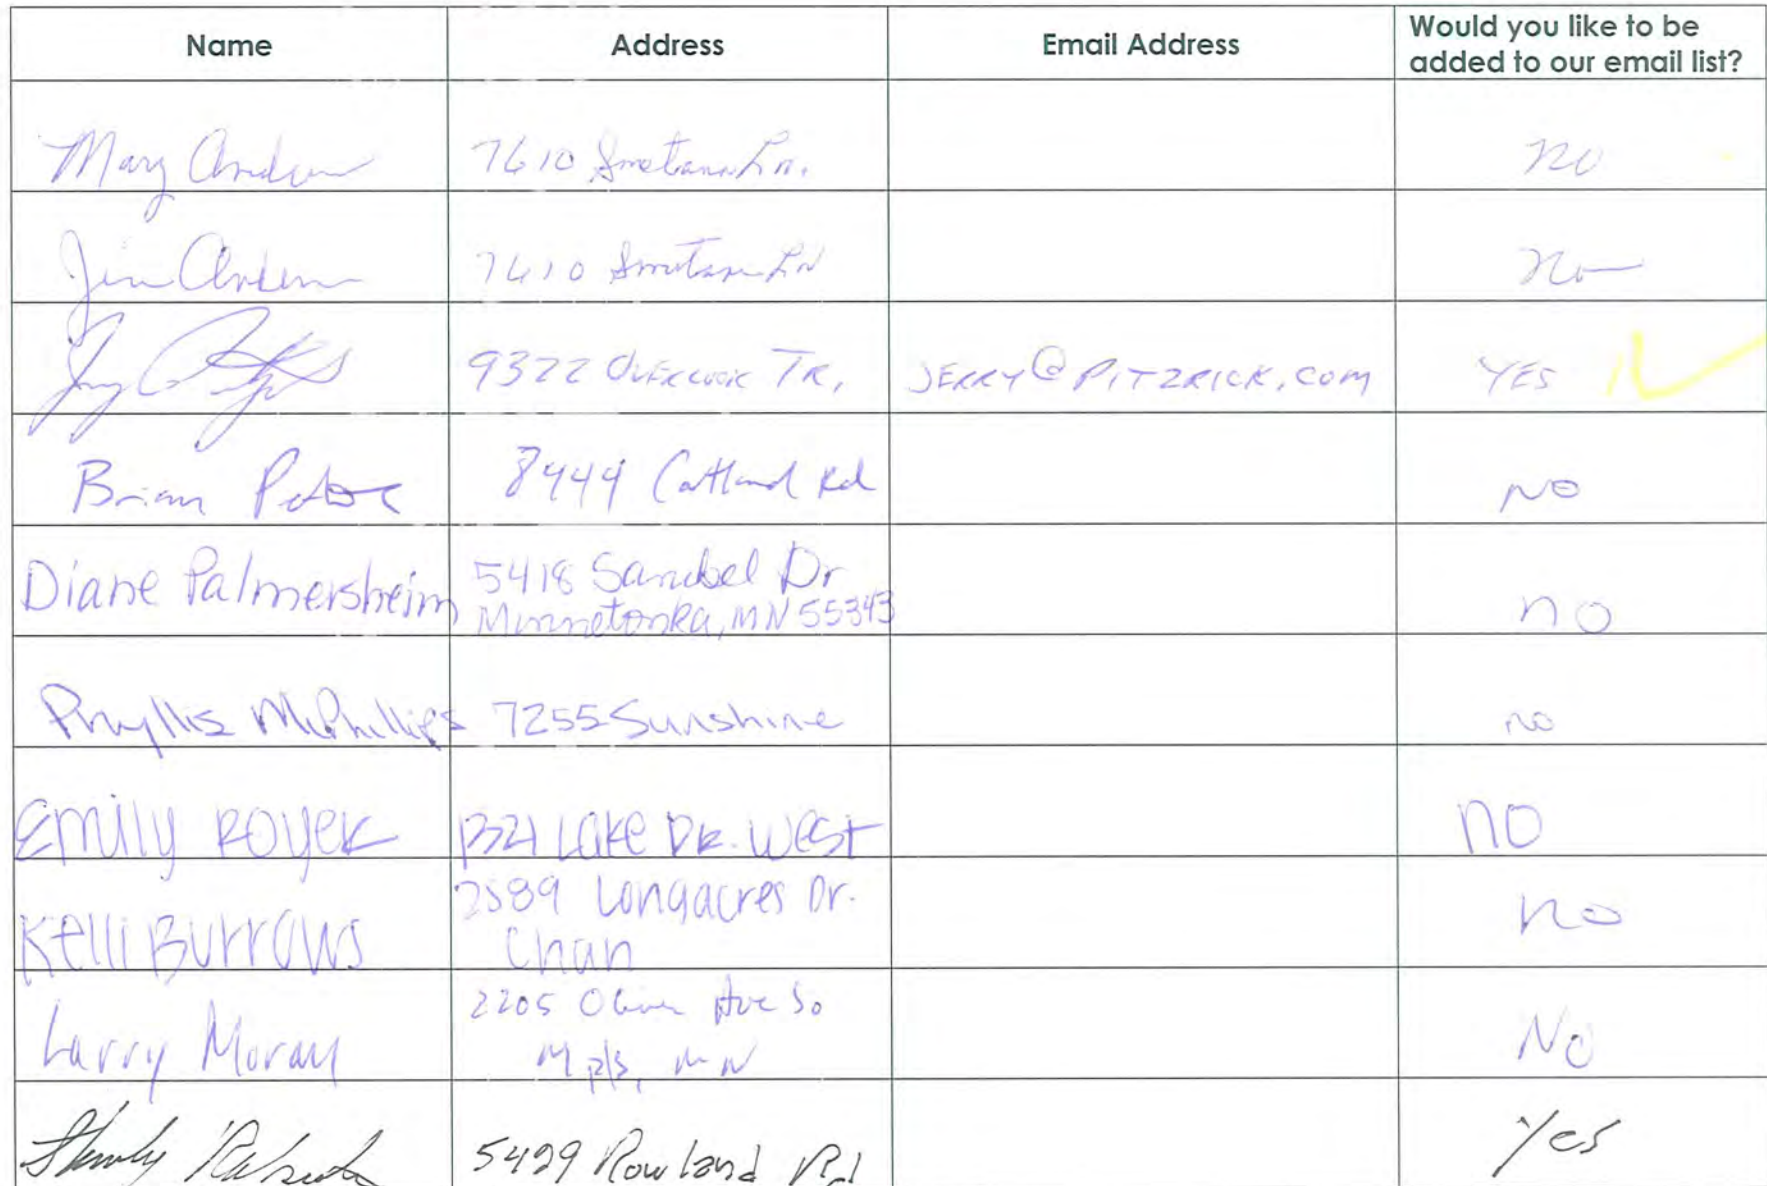 Name Address Email Address Would you like to be
added to our email list?
Mary 7610 Smetana Ln. no
Jim 7610 Smetana Ln no
9322 Overlook Tr, JERRY@PITZRICK.COM YES
Brian 8444 Rd NO
Diane Palmersheim 5418 Sanibel Dr
Minnetonka, MN 55343 no
Phyllis McPhillips 7255 Sunshine no
Emily Royek 1321 Lake Dr. West NO
2589 Longacres Dr.
Kelli Burrows Chan no
2205 Oliver Ave So
Larry Moran Mpls, MN No
5429 Rowland Rd Yes